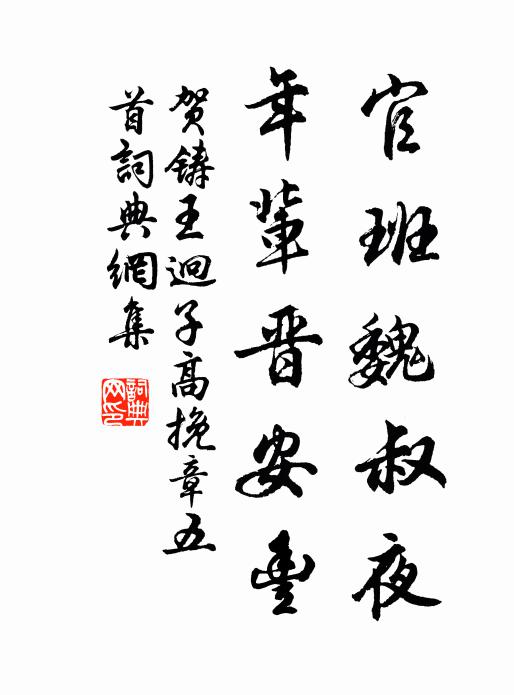 官班魏叔夜
年輩晋安豐
賀鑄王迴子高挽章五
首詞典網集
詞典網印